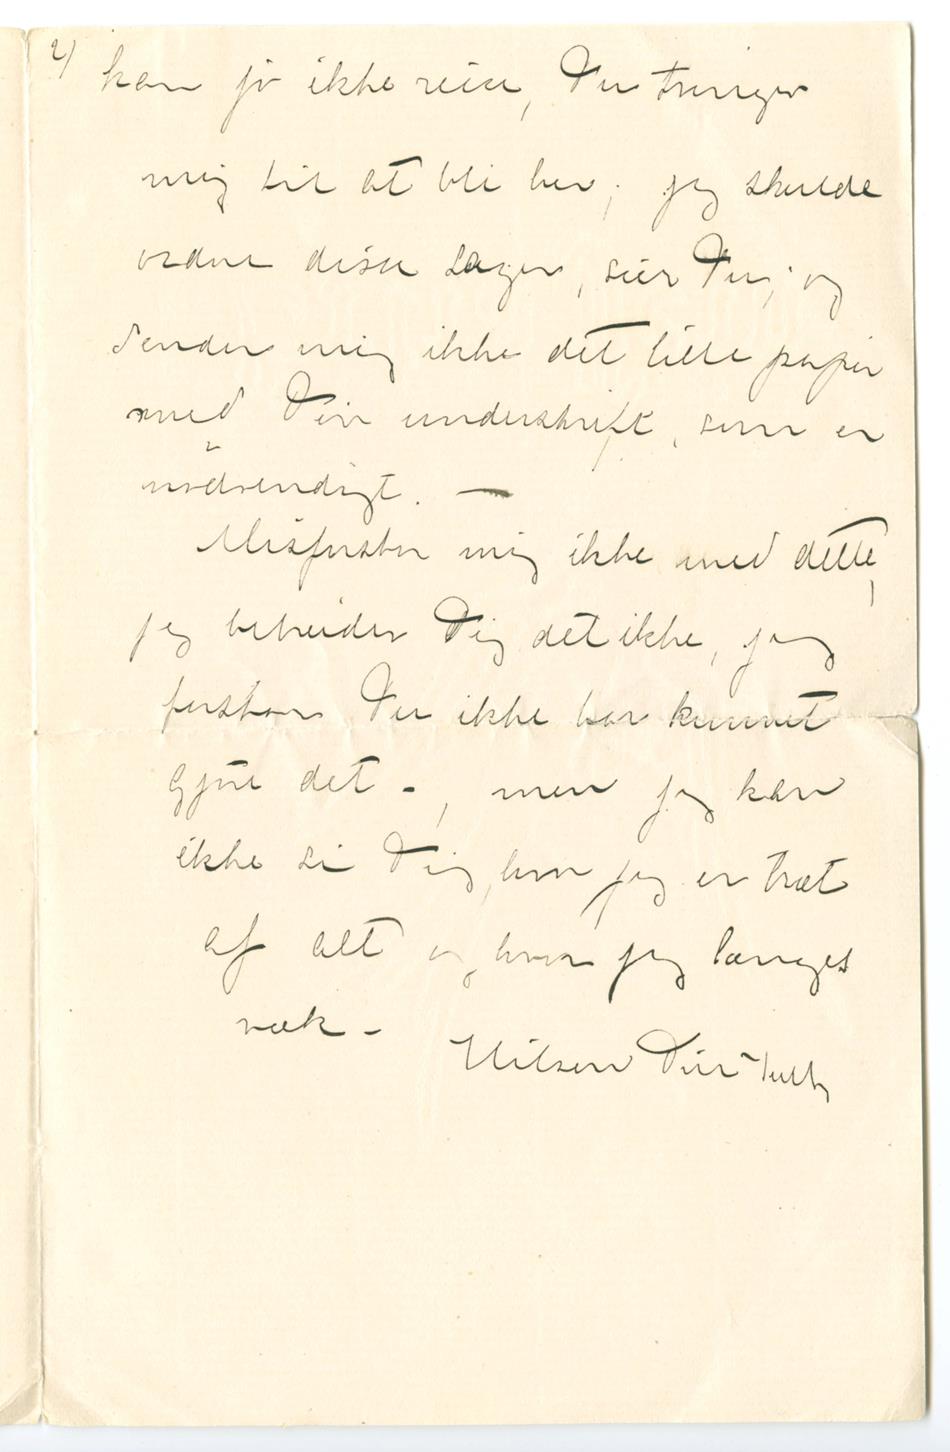 2/ kan jo ikke reise, Du tvinger
mig til at bli her; jeg skulde
ordne disse sager, sier Du; og
sender mig ikke det lille papir
med Din underskrift, som er
nødvendigt. —
Misforstaa mig ikke med dette,
jeg bebreider Dig det ikke, jeg
forstaar Du ikke har kunnet
gjøre det –, men jeg kan
ikke si Dig, hvor jeg er træt
af alt og hvor jeg længes
væk –
Hilsen Din Tulla